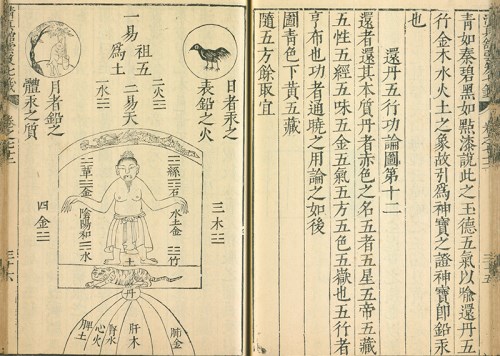 青如秦碧黑如點漆說此之玉德五氣以喩還丹五
行金木水火土之象故引爲神寶之證神寶即鉛汞
也
還丹五行功論圖第十二
還者還其本質丹者赤色之名五者五星五帝五藏
五性五經五味五金五氣五方五色五嶽也五行者
亨布也功者通曉之用論之如後
圖青色下黃五藏
隨五方餘取宜
日者汞之
表鉛之火
三木☵
一易祖五
爲土二易天
二火☲
一水☵
月者鉛之
體汞之質
四金☵
☲石
水土金
☵竹
☲草☲金
陰陽和☵水
土
丹
肺金
肝木
腎水
心火
脾土